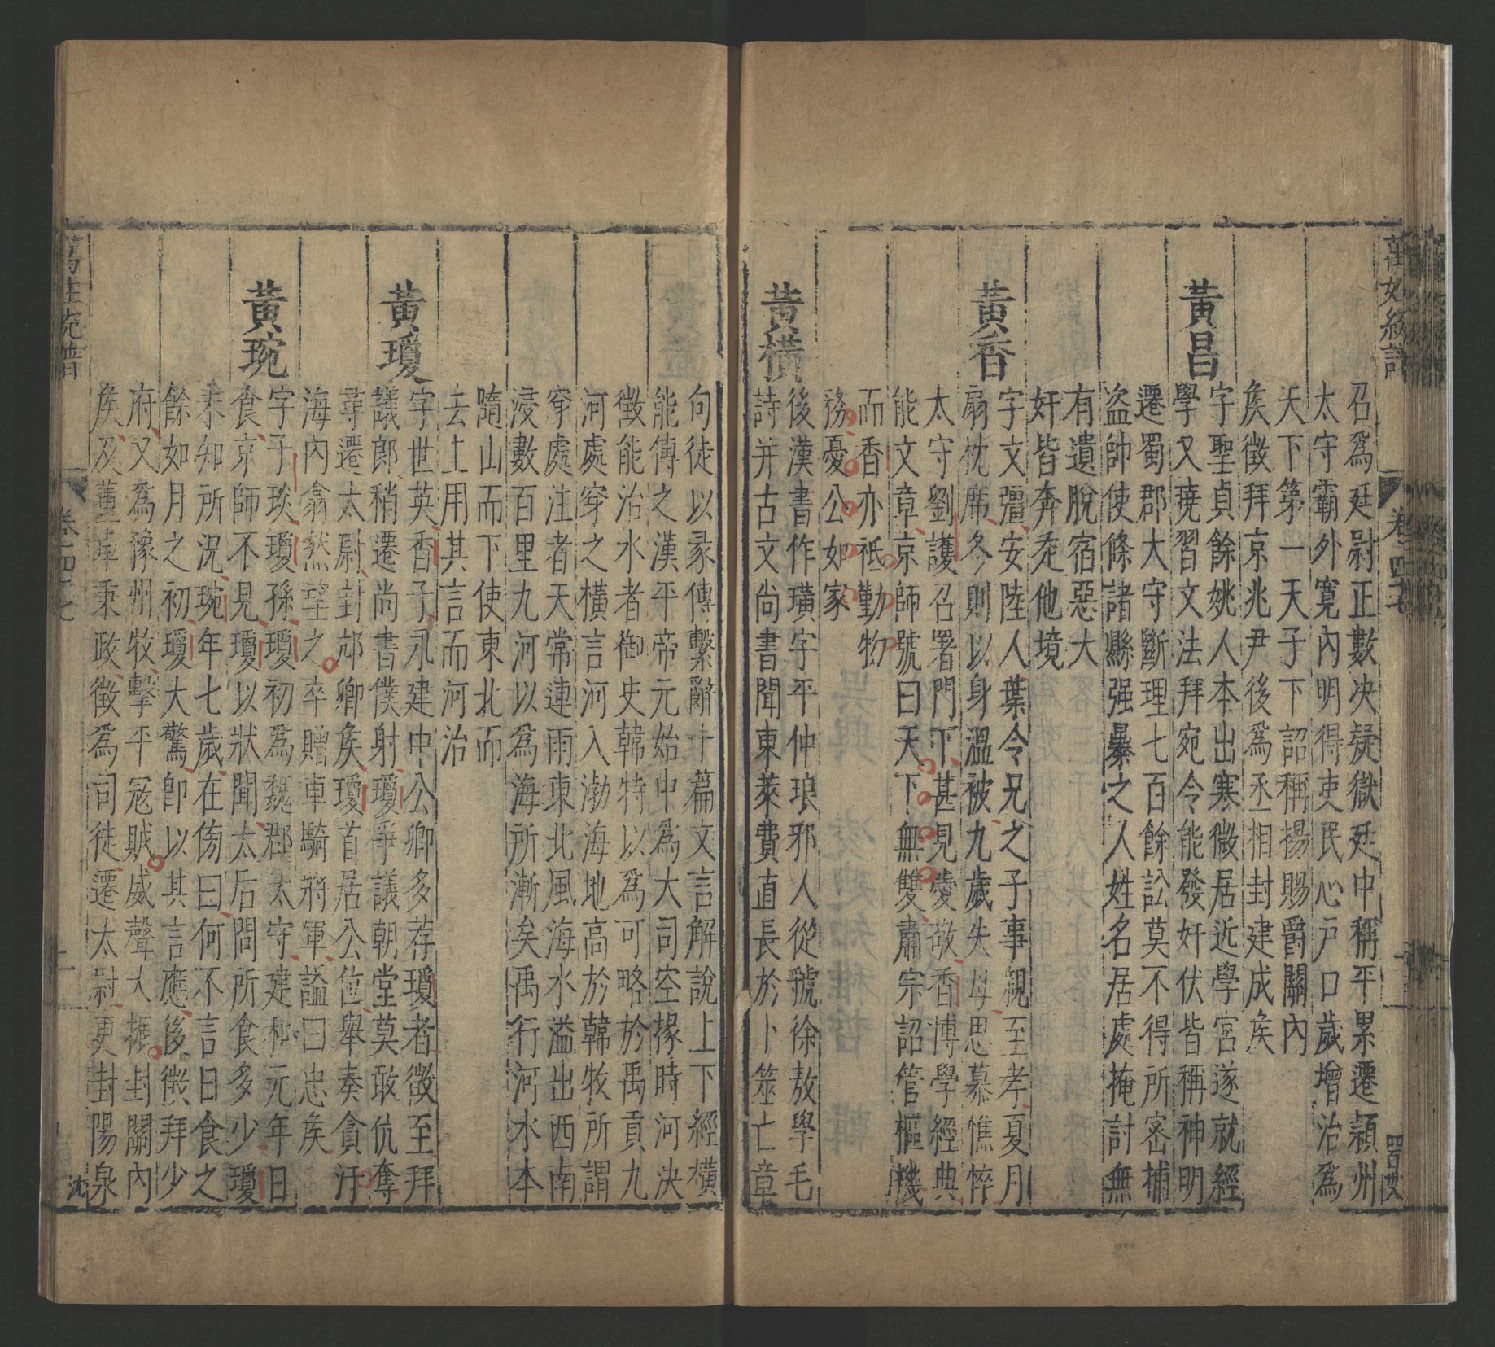 召爲廷尉正數决疑獄廷中稱平累遷潁州
太守霸外寬內明得吏民心戸口歲增治爲
天下第一天子下詔稱揚賜爵關內
矦徵拜京兆尹後爲丞相封建成矦
黃昌
字聖貞餘姚人本出寒微居近學宮遂就經
學又曉習文法拜宛令能發奸伏皆稱神明
遷蜀郡大守斷理七百餘訟莫不得所密捕
盜帥使條諸縣强暴之人姓名居處掩討無
有遺脫宿惡大
奸皆奔走他境
黃香
字文彊安陸人葉令兄之子事親至孝夏月
扇枕席冬則以身溫被九歲失母思慕憔悴
太守劉護召署門下甚見愛敬香博學經典
能文章京師號曰天下無雙肅宗詔管樞機
而香亦祇勤物
務憂公如家
黃橫
後漢書作璜字平仲琅邪人從虢徐敖學毛
詩并古文尚書聞東萊費直長於卜筮亡章
句徒以彖傳繫辭十篇文言解說上下經橫
能傳之漢平帝元始中爲大司空掾時河决
徵能治水者御史韓特以爲可略於禹貢九
河處穿之橫言河入渤海地高於韓牧所謂
穿處注者天常連雨東北風海水溢出西南
浸數百里九河以爲海所漸矣禹行河水本
隨山而下使東北而
去上用其言而河治
黃瓊
字世英香子永建中公卿多荐瓊者徵至拜
議郎稍遷尚書僕射瓊爭議朝堂莫敢仇奪
尋遷太尉封邟卿矦瓊首居公位舉奏貪汙
海內翕然望之卒贈車騎將軍謚曰忠矦
黃琬
字子琰瓊孫瓊初爲魏郡太守建和元年日
食京師不見瓊以狀聞太后問所食多少瓊
未知所況琬年七歲在傍曰何不言日食之
餘如月之初瓊大驚卽以其言應後徵拜少
府又爲豫州牧擊平寇賊威聲大振封關內
矦及董卓秉政徵爲司徒遷太尉更封陽泉
萬姓統譜
卷四七